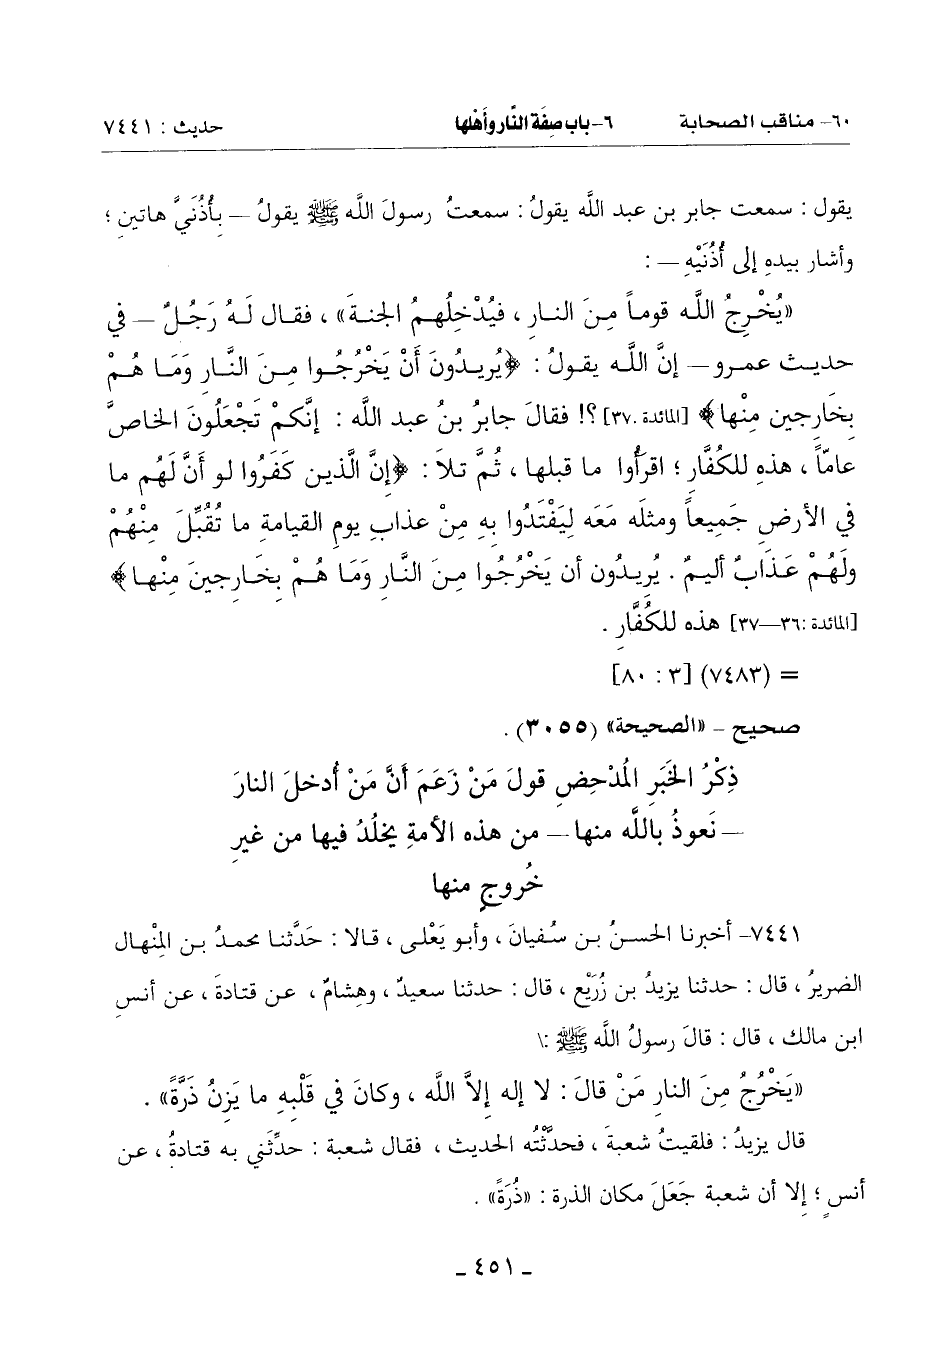 ٦٠- مناقب الصحابة ٦- باب صِفَة النَّار وأَهْلها حديث : ٧٤٤١
يقول : سمعت جابر بن عبد اللَّه يقولُ : سمعتُ رسولَ اللَّه ﷺ يقولُ – بأُذُنَيَّ هاتينِ ؛
وأشار بيدهِ إلى أُذُنَيْهِ – :
«يُخْرِجُ اللَّه قوماً مِنَ النـارِ ، فيُدْخِلُهـمُ الجنـةَ» ، فقـال لَـهُ رَجُـلٌ – في
حديـثِ عمـرٍو – إنَّ اللَّـه يقـولُ : ﴿يُرِيـدُونَ أَنْ يَخْرُجُـوا مِـنَ النَّـارِ وَمَـا هُـمْ
بِخَارِجِين مِنْها﴾ [المائدة .٣٧] ؟! فقالَ جابرُ بنُ عبد اللَّه : إنَّكمْ تَجْعَلُونَ الخاصَّ
عامّاً ، هذهِ للكُفَّارِ ؛ اقرأُوا ما قبلها ، ثُمَّ تلاَ : ﴿إنَّ الَّذين كَفَرُوا لو أَنَّ لَهُم ما
في الأرضِ جَمِيعاً ومثلَه مَعَه لِيَفْتَدُوا بِهِ مِنْ عذابِ يومِ القيامةِ ما تُقُبِّلَ مِنْهُمْ
ولَهُمْ عَذَابٌ أليمٌ . يُرِيدُون أن يَخْرُجُوا مِنَ النَّارِ وَمَا هُـمْ بِخَارِجِينَ مِنْهـا﴾
[المائدة :٣٦–٣٧] هذه للكُفَّارِ .
= (٧٤٨٣) [٣ : ٨٠]
صحيح - «الصحيحة» (٣٠٥٥) .
ذِكْرُ الخَبَرِ المُدْحِضِ قولَ مَنْ زَعَمَ أَنَّ مَنْ أُدخلَ النارَ
– نَعوذُ باللَّه منها – من هذه الأمةِ يخلُدُ فيها من غيرِ
خُروجٍ منها
٧٤٤١- أخبرنا الحسـنُ بـن سُـفيانَ ، وأبـو يَعْلـى ، قـالا : حَدَّثنـا محمـدُ بـن المِنْهـال
الضريرُ ، قال : حدثنا يزيدُ بن زُرَيْعٍ ، قال : حدثنا سعيدٌ ، وهشامٌ ، عـن قتـادةَ ، عـن أنسِ
ابن مالك ، قال : قالَ رسولُ اللَّه ﷺ :\
«يَخْرُجُ مِنَ النارِ مَنْ قالَ : لا إله إلاَّ اللَّه ، وكانَ في قَلْبِهِ ما يَزِنُ ذَرَّةً» .
قال يزيدُ : فلقيتُ شعبةَ ، فحدَّثْتُه الحديث ، فقال شعبة : حدَّثَني به قتادةُ ، عـن
أنسٍ ؛ إلا أن شعبة جَعَلَ مكان الذرة : «ذُرَةً» .
- ٤٥١ -